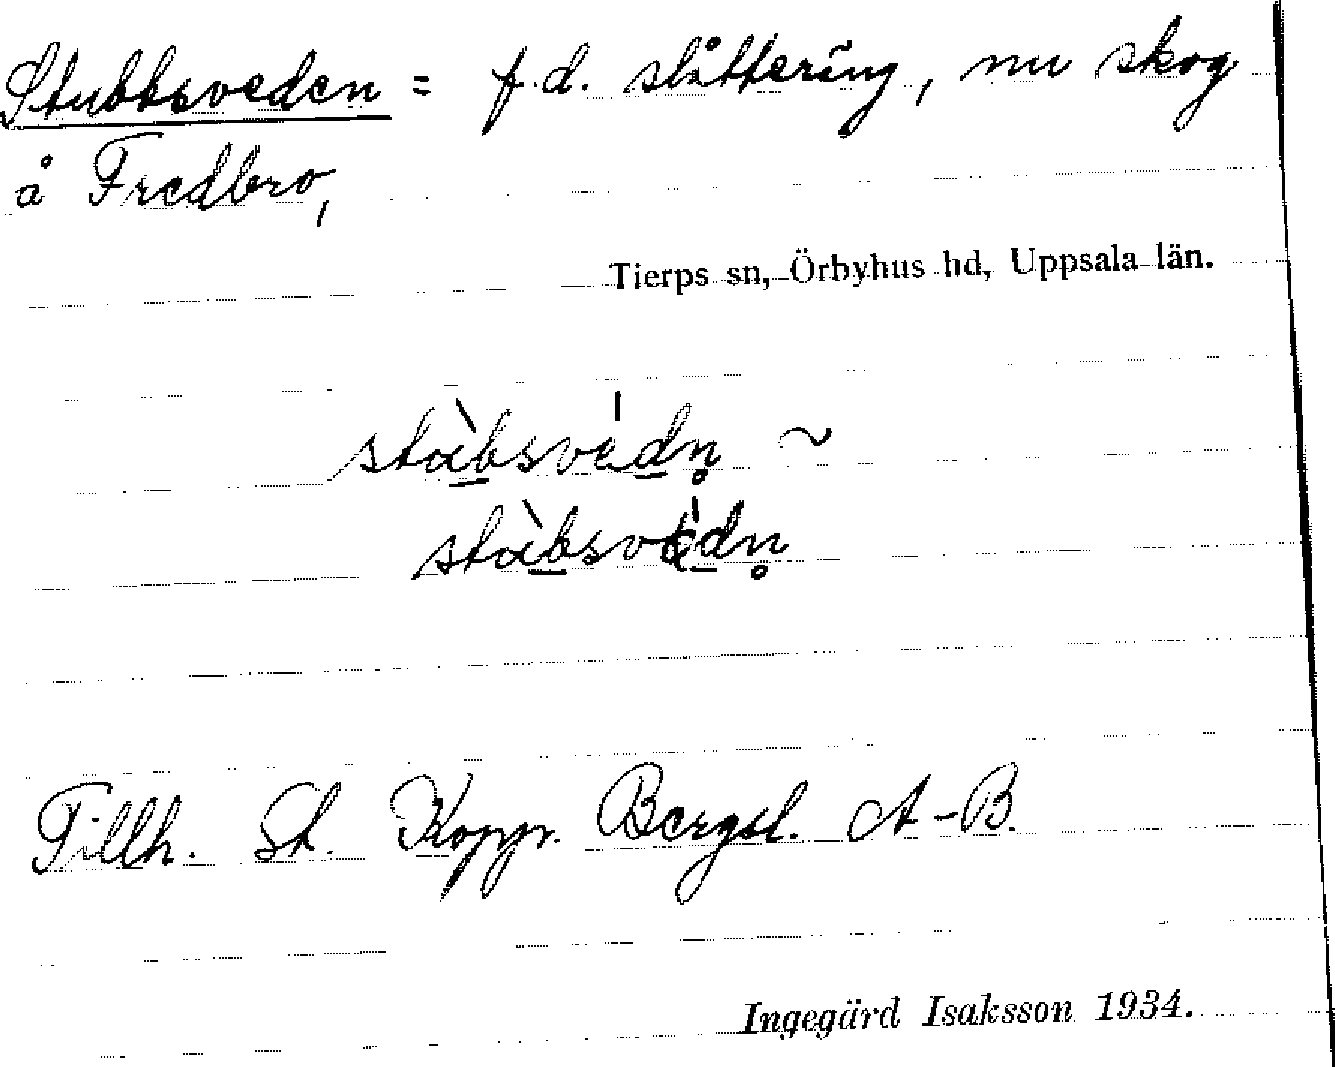 Stubbsveden = f.d. slåttering, nu skog
å Fredbro,
Tierps sn, Örbyhus hd, Uppsala län.
Tillh. St. Kopp. Bergsl. A-B.
Ingegärd Isaksson 1934.